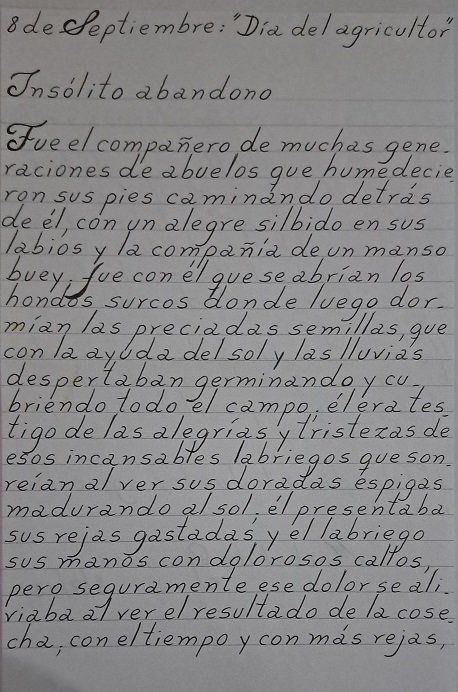 8 de Septiembre: "Día del agricultor"
Insólito abandono
Fue el compañero de muchas gene-
raciones de abuelos que humedecie-
ron sus pies caminando detrás
de él, con un alegre silbido en sus
labios y la compañía de un manso
buey, fue con él que se abrían los
hondos surcos donde luego dor-
mían las preciadas semillas, que
con la ayuda del sol y las lluvias
despertaban germinando y cu-
briendo todo el campo; él era tes-
tigo de las alegrías y tristezas de
esos incansables labriegos que son-
reían al ver sus doradas espigas
madurando al sol; él presentaba
sus rejas gastadas, y el labriego
sus manos con dolorosos callos,
pero seguramente ese dolor se ali-
viaba al ver el resultado de la cose-
cha, con el tiempo y con más rejas,